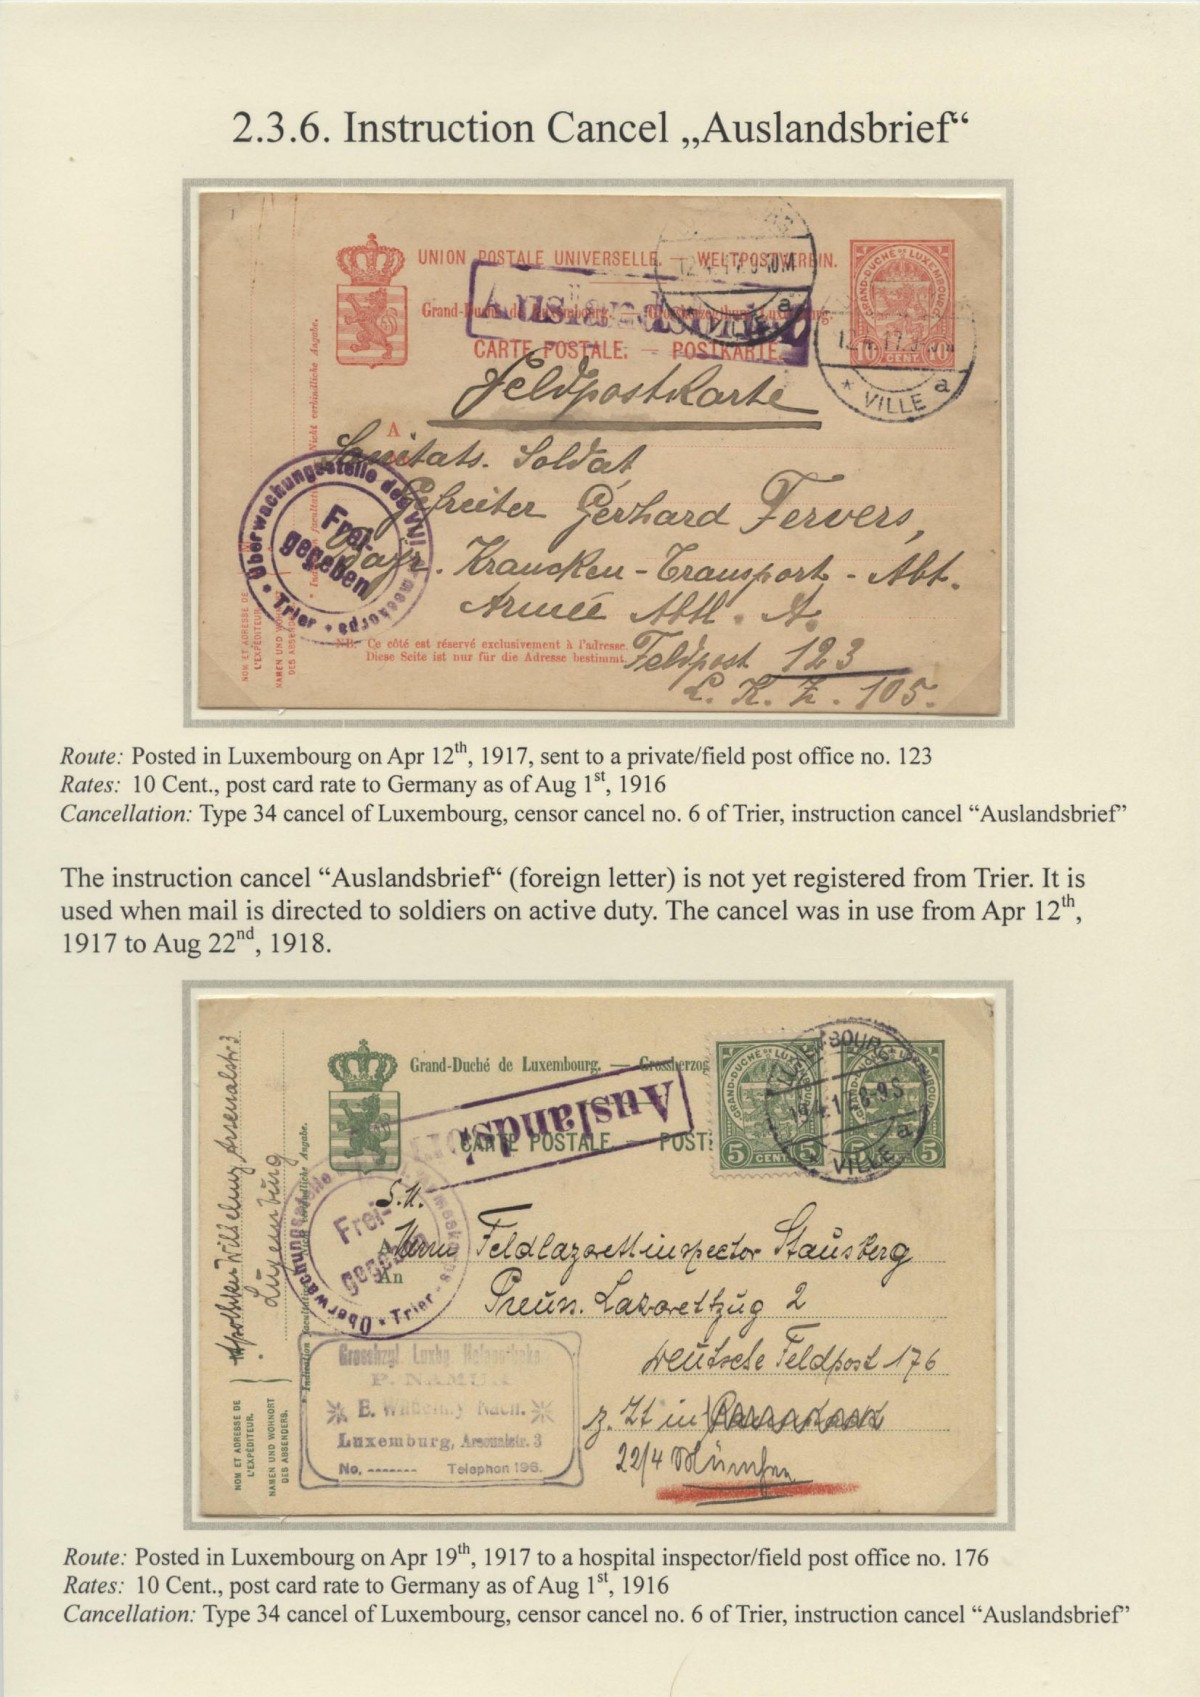 2.3.6. Instruction Cancel „Auslandsbrief“
UNION POSTALE UNIVERSELLE. — WELTPOSTVEREIN.
Grand-Duché de Luxembourg. — Grossherzogthum Luxemburg.
CARTE POSTALE. — POSTKARTE.
Auslandsbrief
GRAND-DUCHÉ DE LUXEMBOURG
10 CENT. 10
12.4.17.9-10M
* VILLE a
12.4.17.9-10M
* VILLE a
Nicht verbindliche Angabe.
Feldpostkarte
A
Sanitats. Soldat
Gefreiter Gerhard Fervers,
Bayr. Krancken-Transport-Abt.
Armée Abtl. A.
Feldpost 123
L. K. Z. 105.
Überwachungsstelle des VIII Armeekorps
Frei-
gegeben
* Trier *
NB. Ce côté est réservé exclusivement à l'adresse.
Diese Seite ist nur für die Adresse bestimmt.
NOM ET ADRESSE DE
L'EXPÉDITEUR.
NAMEN UND WOHNORT
DES ABSENDERS
Route: Posted in Luxembourg on Apr 12th, 1917, sent to a private/field post office no. 123
Rates: 10 Cent., post card rate to Germany as of Aug 1st, 1916
Cancellation: Type 34 cancel of Luxembourg, censor cancel no. 6 of Trier, instruction cancel “Auslandsbrief”
The instruction cancel “Auslandsbrief“ (foreign letter) is not yet registered from Trier. It is
used when mail is directed to soldiers on active duty. The cancel was in use from Apr 12th,
1917 to Aug 22nd, 1918.
Grand-Duché de Luxembourg. — Grossherzog
CARTE POSTALE. — POST
Auslandsbrief
GRAND-DUCHÉ DE LUXEMBOURG
5 CENT. 5
5 CENT. 5
LUXEMBOURG
19.4.17.8-9S
* VILLE a
Apotheker Wilhelmy Arsenalstr. 3
Luxemburg
Indication facultative. Nicht verbindliche Angabe.
Überwachungsstelle Armeekorps
Frei-
gegeben
* Trier *
S.H.
An
Herrn Feldlazarettinspector Stausberg
Preuss. Lazarettzug 2
Deutsche Feldpost 176
z. Zt in
22/4 München
Grosshzgl. Luxbg. Hofapotheke
P. NAMUR
E. Wilhelmy Nach.
Luxemburg, Arsenalstr. 3
No. ------- Telephon 196.
NOM ET ADRESSE DE
L'EXPÉDITEUR.
NAMEN UND WOHNORT
DES ABSENDERS.
Route: Posted in Luxembourg on Apr 19th, 1917 to a hospital inspector/field post office no. 176
Rates: 10 Cent., post card rate to Germany as of Aug 1st, 1916
Cancellation: Type 34 cancel of Luxembourg, censor cancel no. 6 of Trier, instruction cancel “Auslandsbrief”